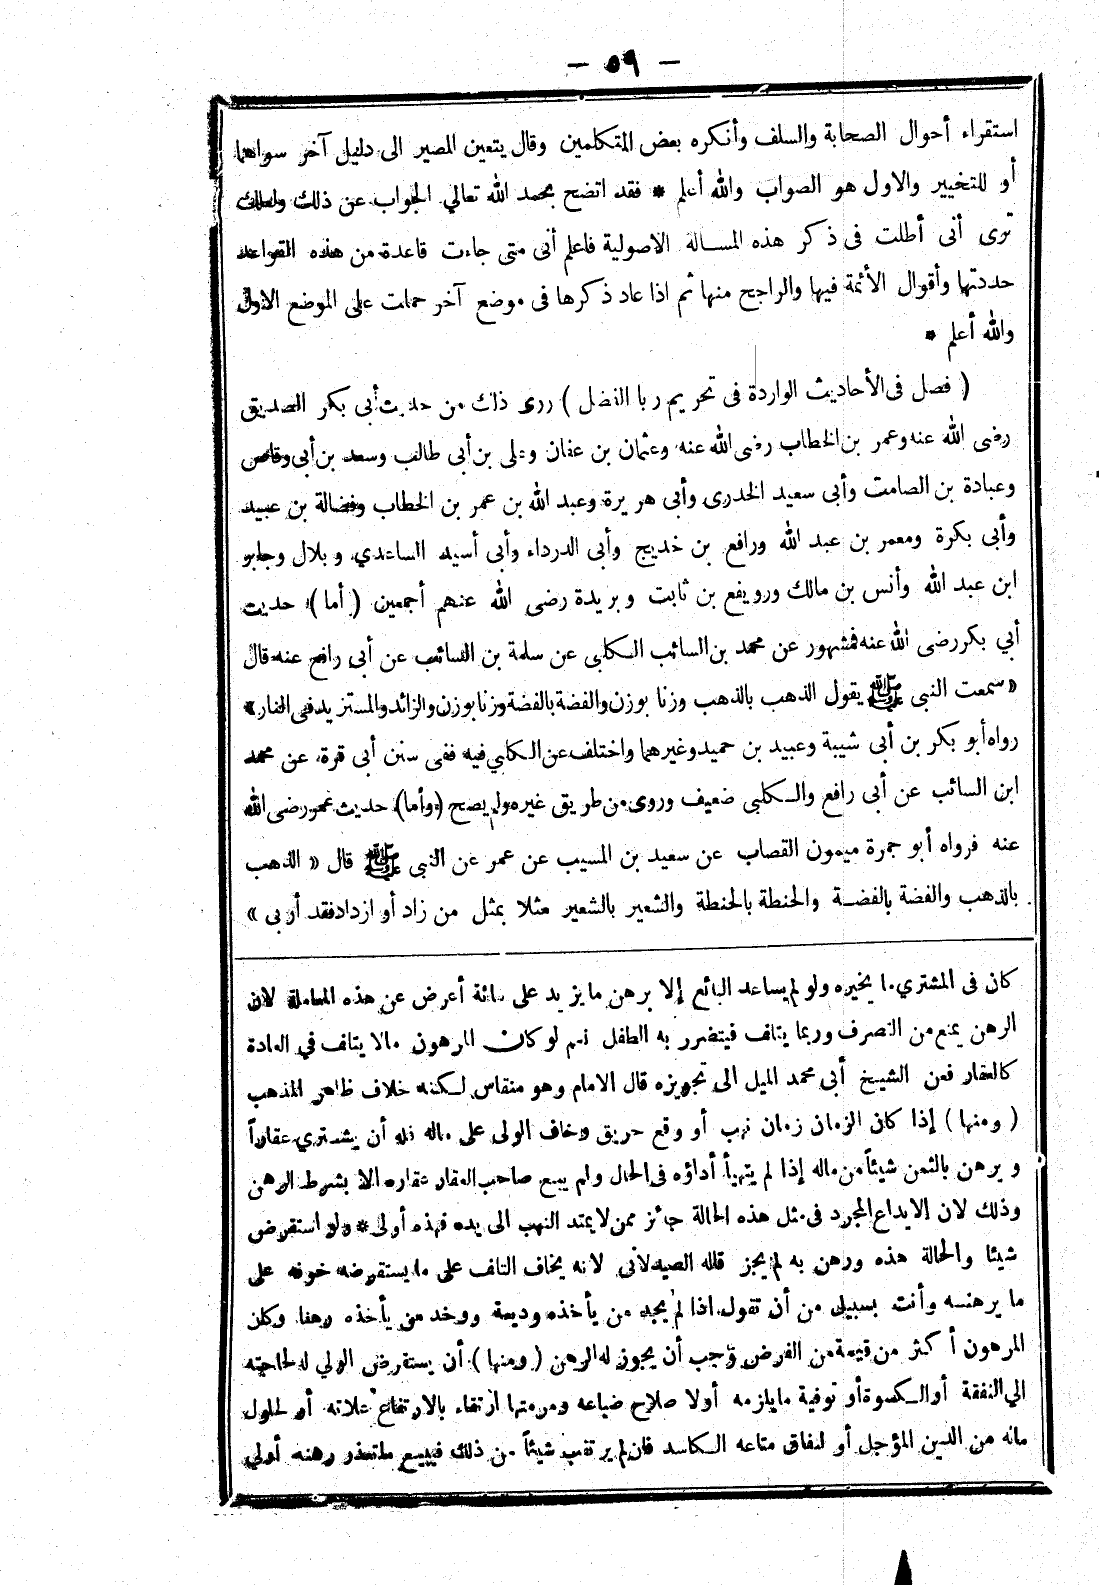 — ٥٩ —
استقراء أحوال الصحابة والسلف وأنكره بعض المتكلمين وقال يتعين المصير الى دليل آخر سواهما
أو للتخيير والاول هو الصواب والله أعلم * فقد اتضح بحمد الله تعالي الجواب عن ذلك ولذلك
ترى أنى أطلت فى ذكر هذه المسألة الاصولية فاعلم أنى متى جاءت قاعدة من هذه القواعد
حددتها وأقوال الأئمة فيها والراجح منها ثم اذا عاد ذكرها فى موضع آخر حملت على الموضع الاول
والله أعلم *
( فصل فى الأحاديث الواردة فى تحريم ربا الفضل ) روى ذلك من حديث أبى بكر الصديق
رضى الله عنه وعمر بن الخطاب رضى الله عنه وعثمان بن عفان وعلى بن أبى طالب وسعد بن أبى وقاص
وعبادة بن الصامت وأبى سعيد الخدرى وأبى هريرة وعبد الله بن عمر بن الخطاب وفضالة بن عبيد
وأبى بكرة ومعمر بن عبد الله ورافع بن خديج وأبى الدرداء وأبى أسيد الساعدي وبلال وجابر
ابن عبد الله وأنس بن مالك ورويفع بن ثابت وبريدة رضى الله عنهم أجمعين ( أما ) حديث
أبي بكر رضى الله عنه فمشهور عن محمد بن السائب الكلبى عن سلمة بن السائب عن أبى رافع عنه قال
« سمعت النبى ﷺ يقول الذهب بالذهب وزنا بوزن والفضة بالفضة وزنا بوزن والزائد والمستزيد فى النار »
رواه أبو بكر بن أبى شيبة وعبيد بن حميد وغيرهما واختلف عن الكلبي فيه ففى سنن أبى قرة عن محمد
ابن السائب عن أبى رافع والكلبى ضعيف وروى من طريق غيره ولم يصح ( وأما ) حديث عمر رضى الله
عنه فرواه أبو حمرة ميمون القصاب عن سعيد بن المسيب عن عمر عن النبى ﷺ قال « الذهب
بالذهب والفضة بالفضة والحنطة بالحنطة والشعير بالشعير مثلا بمثل من زاد أو ازداد فقد أربى »
كان فى المشتري ما يخيره ولو لم يساعد البائع إلا برهن ما يزيد على مائة أعرض عن هذه المعاملة لان
الرهن يمنع من التصرف وربما يتلف فيتضرر به الطفل نعم لو كان المرهون مما لا يتلف في العادة
كالعقار فعن الشيخ أبى محمد الميل الى تجويزه قال الامام وهو منقاس لكنه خلاف ظاهر المذهب
( ومنها ) إذا كان الزمان زمان نهب أو وقع حريق وخاف الولى على ماله فله أن يشتري عقاراً
ويرهن بالثمن شيئاً من ماله إذا لم يتهيأ أداؤه فى الحال ولم يبع صاحب العقار عقاره الا بشرط الرهن
وذلك لان الايداع المجرد فى مثل هذه الحالة جائز ممن لا يمتد النهب الى يده فهذه أولى * ولو استقرض
شيئا والحالة هذه ورهن به لم يجز قاله الصيدلانى لانه يخاف التلف على ما يستقرضه خوفه على
ما يرهنه وأنت بسبيل من أن تقول اذا لم يجد من يأخذه وديعة ووجد من يأخذه رهنا وكان
المرهون أكثر من قيمة من القرض وجب أن يجوز له الرهن ( ومنها ) أن يستقرض الولي له لحاجته
الي النفقة أو الكسوة أو توفية ما يلزمه أولا صلاح ضياعه ومرمتها ارتقاء بالارتفاع غلاته أو لحلول
ماله من الدين المؤجل أو لنفاق متاعه الكاسد فان لم يرتقب شيئاً من ذلك فبيع ما تعذر رهنه أولي